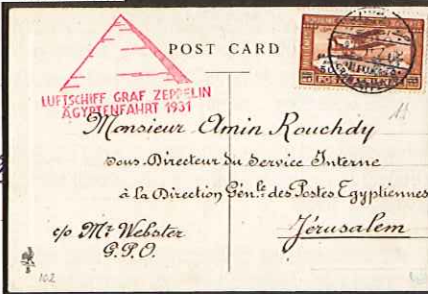 POST CARD
LUFTSCHIFF GRAF ZEPPELIN
ÄGYPTENFAHRT 1931
Monsieur Amin Rouchdy
Sous-Directeur du Service Interne
à la Direction Génle des Postes Egyptiennes
Jérusalem
c/o Mr Webster
G.P.O.
162